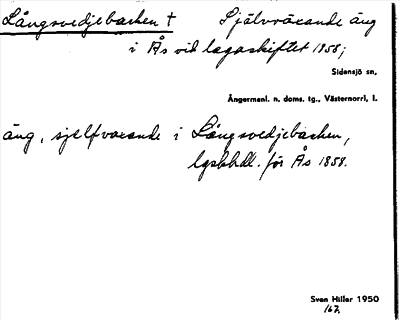 Långsvedjebacken † Självväxande äng
i Ås vid lagaskiftet 1858;
Sidensjö sn,
Ångermanl. n. doms. tg., Västernorrl, l.
äng, sjelfvaxande i Långsvedjebacken,
lgskhdl. för Ås 1858.
Sven Hiller 1950
167.